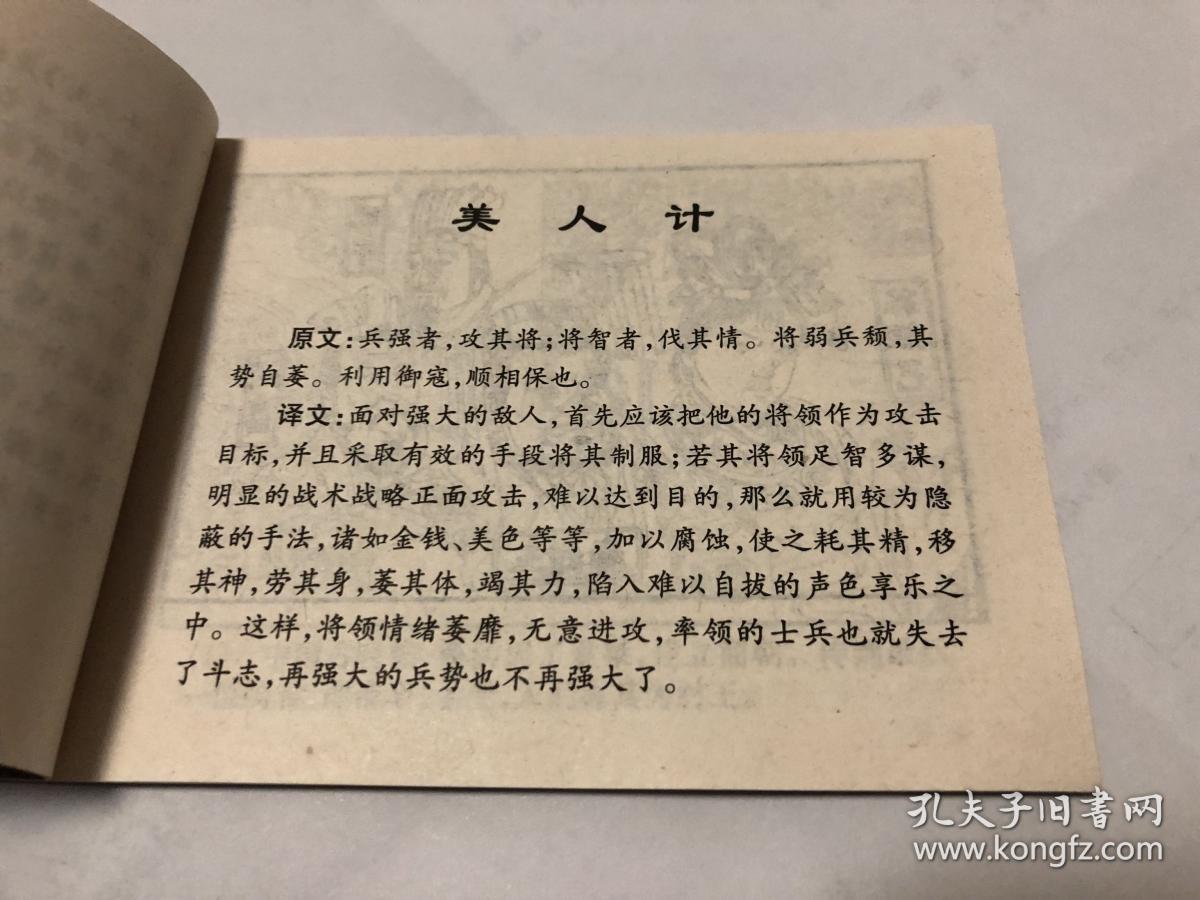 美人计
原文:兵强者,攻其将;将智者,伐其情。将弱兵颓,其
势自萎。利用御寇,顺相保也。
译文:面对强大的敌人,首先应该把他的将领作为攻击
目标,并且采取有效的手段将其制服;若其将领足智多谋,
明显的战术战略正面攻击,难以达到目的,那么就用较为隐
蔽的手法,诸如金钱、美色等等,加以腐蚀,使之耗其精,移
其神,劳其身,萎其体,竭其力,陷入难以自拔的声色享乐之
中。这样,将领情绪萎靡,无意进攻,率领的士兵也就失去
了斗志,再强大的兵势也不再强大了。
孔夫子旧书网
www.kongfz.com